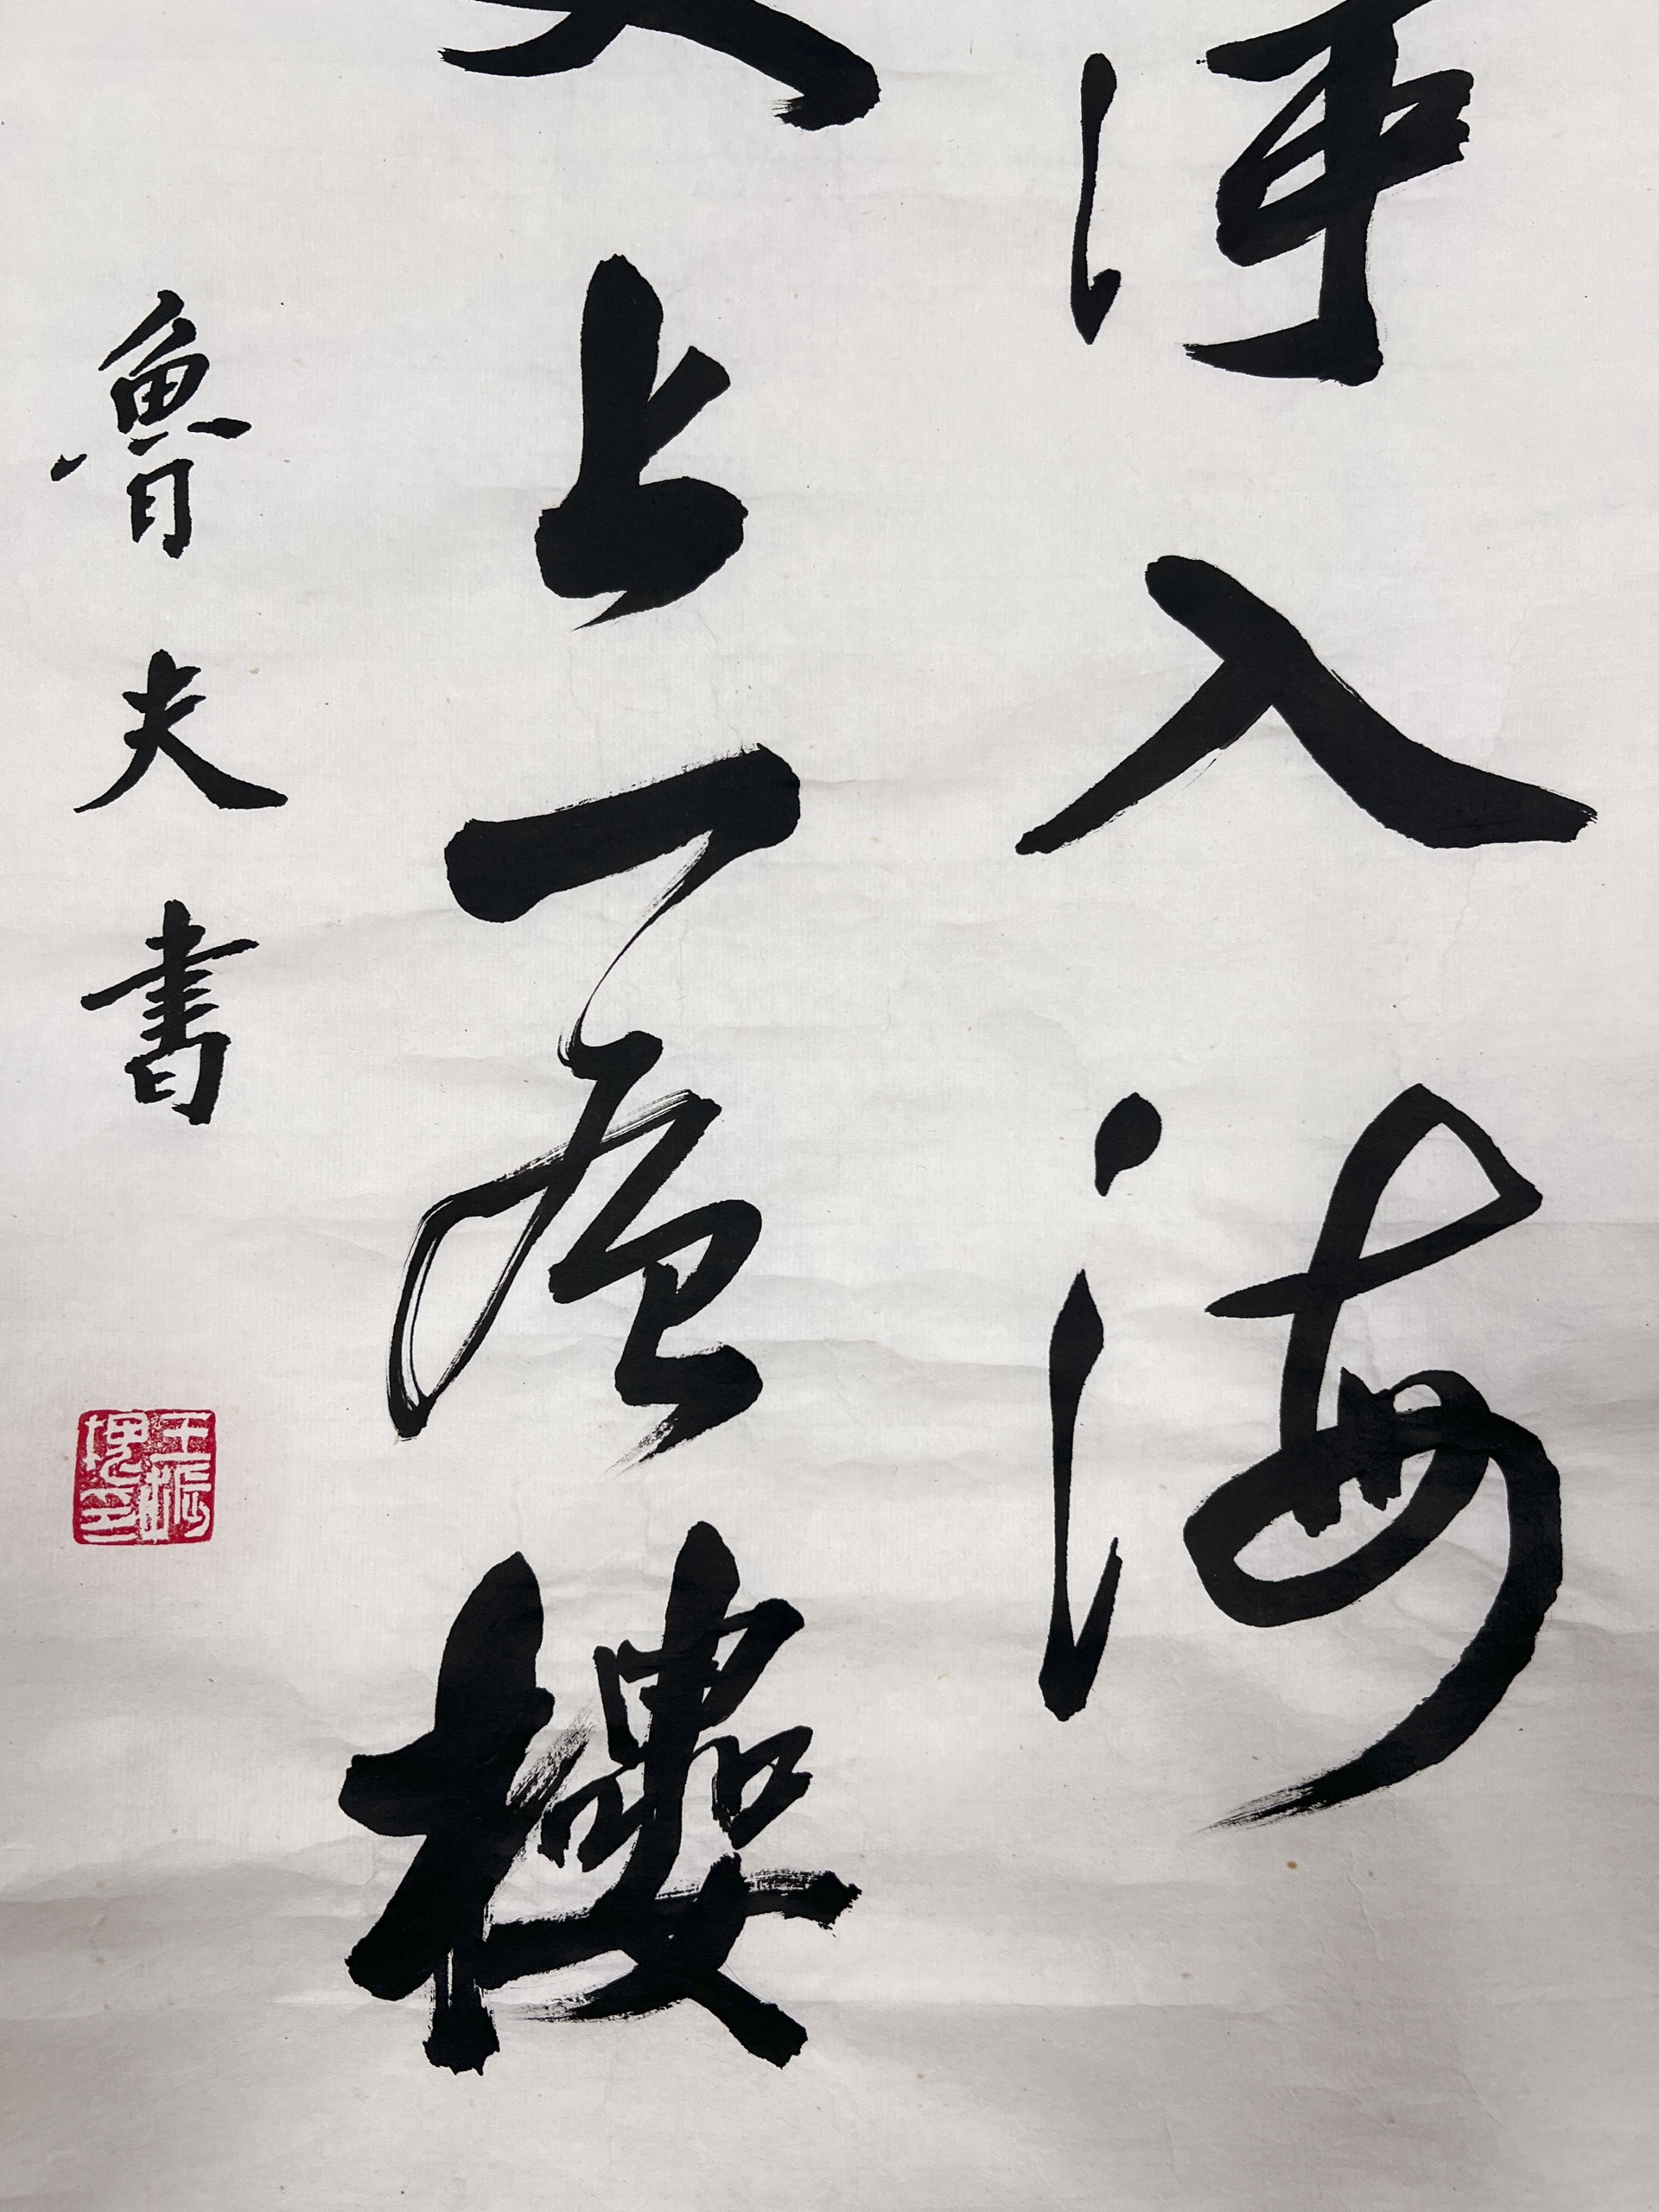 河入海
上一層樓
魯夫書